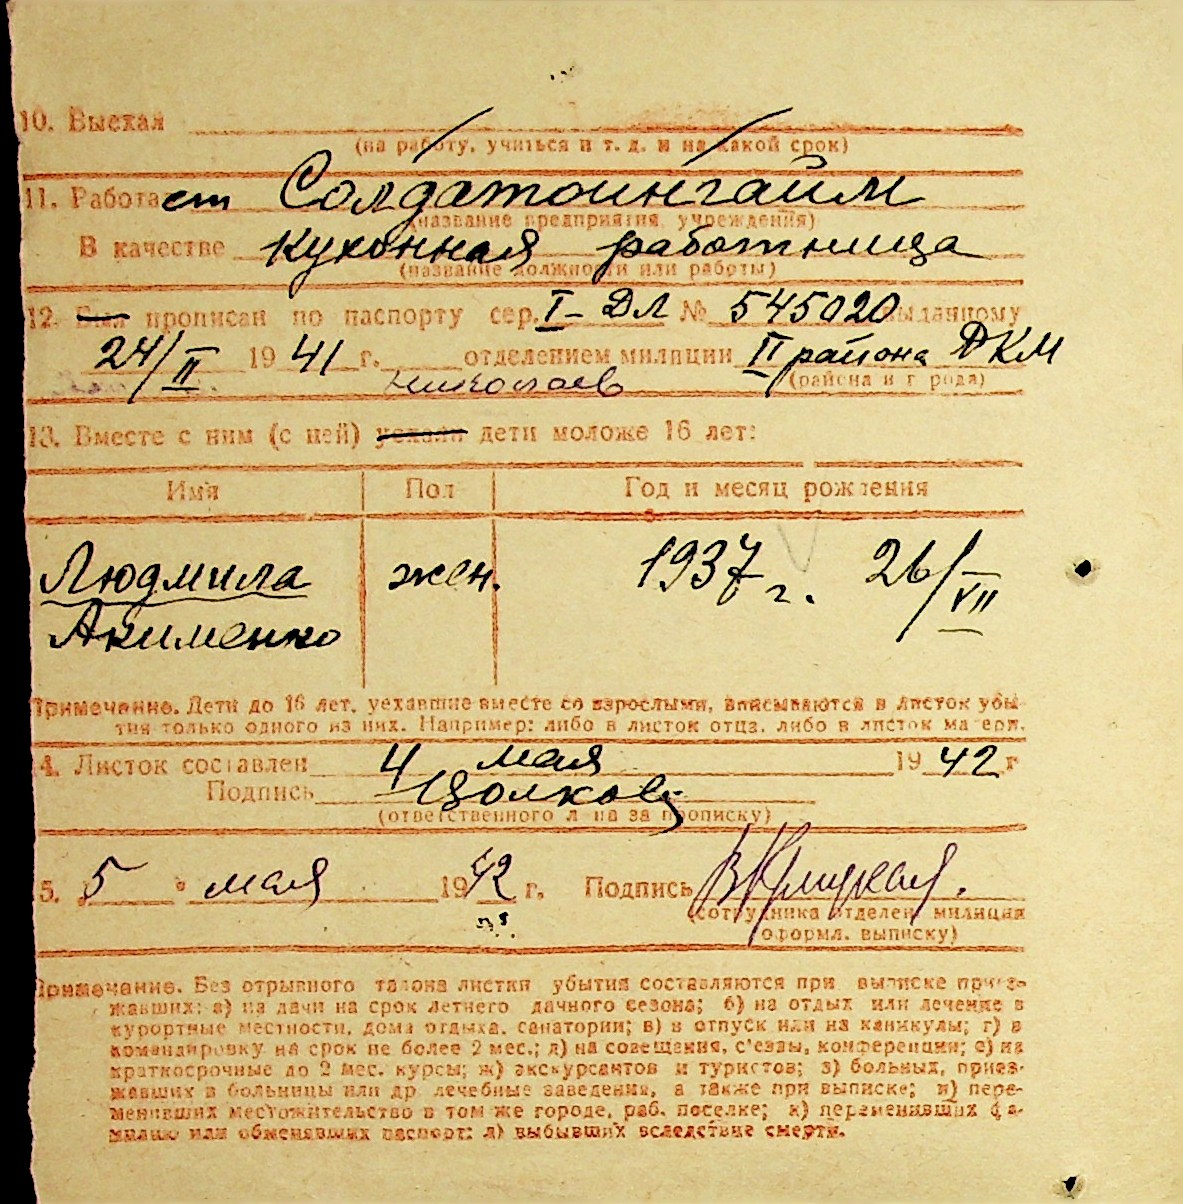 10. Выехал
(на работу, учиться и т. д. и на какой срок)
11. Работает Солдатоингайм
(название предприятия, учреждения)
В качестве кухонная работница
(название должности или работы)
12. Был прописан по паспорту сер. I-ДЛ № 545020 выданному
24/II 1941 г. отделением милиции II района ДКМ
Николаев (района и г рода)
13. Вместе с ним (с ней) уехали дети моложе 16 лет:
Имя Пол Год и месяц рождения
Людмила жен. 1937 г. 26/VII
Акименко
Примечание. Дети до 16 лет, уехавшие вместе со взрослыми, вписываются в листок убы-
тия только одного из них. Например: либо в листок отца, либо в листок матери.
4. Листок составлен 4 мая 1942 г
Подпись
(ответственного л на за прописку)
5. 5 " мая 1942 г. Подпись
(сотрудника отделен. милиции
оформл. выписку)
Примечание. Без отрывного талона листки убытия составляются при выписке приез-
жавших: а) на дачи на срок летнего дачного сезона; б) на отдых или лечение в
курортные местности, дома отдыха, санатории; в) в отпуск или на каникулы; г) в
командировку на срок не более 2 мес.; д) на совещания, с'езды, конференции; е) на
краткосрочные до 2 мес. курсы; ж) экскурсантов и туристов; з) больных, приез-
жавших в больницы или др лечебные заведения, а также при выписке; и) пере-
менивших местожительство в том же городе, раб. поселке; к) переменивших фа-
милию или обменявших паспорт; л) выбывших вследствие смерти.